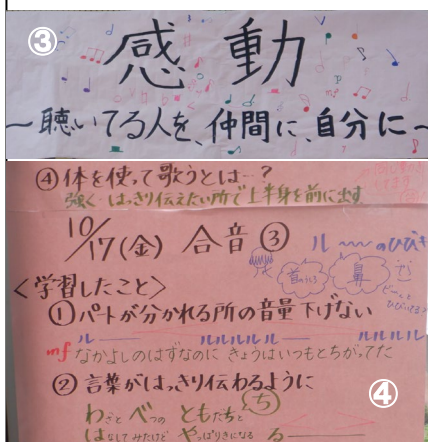 ③
感動
～聴いてる人を、仲間に、自分に～
④体を使って歌うとは…?
強く・はっきり伝えたい所で上半身を前に出す
10/17(金) 合音③
ル～～のひびき
鼻
<学習したこと>
①パートが分かれる所の音量下げない
ル―― ルルルルル―― ルルルルル
mf なかよしのはずなのに きょうはいつもとちがってた
②言葉がはっきり伝わるように
④
わざと べつの ともだちと ち
はなしてみたけど やっぱりきになる る――